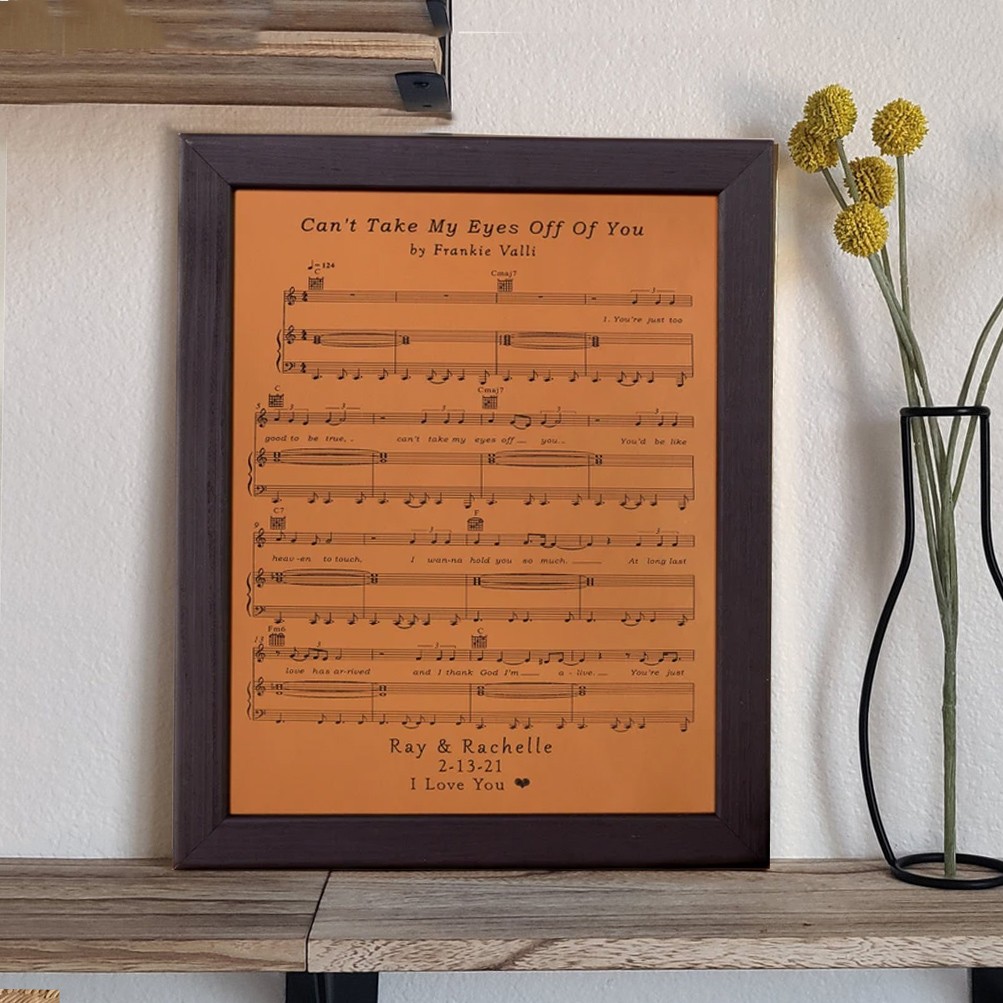 Can't Take My Eyes Off Of You
by Frankie Valli
♩=124
C Cmaj7
1. You're just too
C Cmaj7
5 3 3 3 3 3
good to be true,. can't take my eyes off __ you.. You'd be like
C7 F
9 3 3
heav-en to touch, I wan-na hold you so much. ____ At long last
Fm6 C
13 3 3
love has ar-rived and I thank God I'm ___ a - live. __ You're just
Ray & Rachelle
2-13-21
I Love You ❤